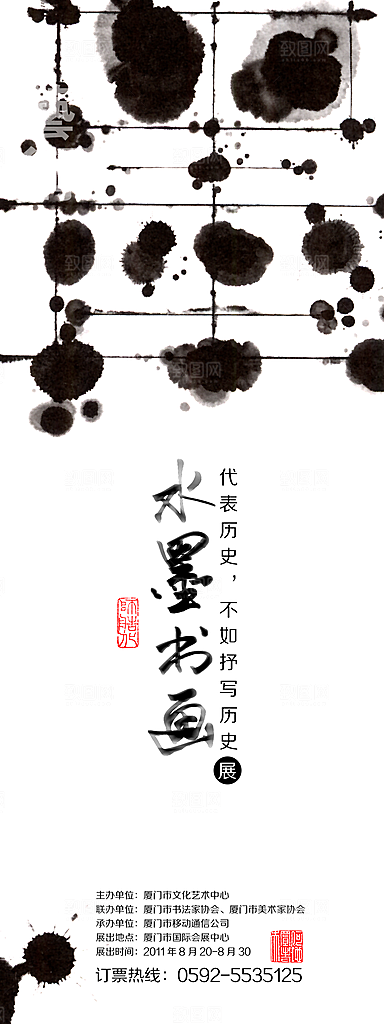 水墨书画
代表历史，不如抒写历史
展
主办单位：厦门市文化艺术中心
联办单位：厦门市书法家协会、厦门市美术家协会
承办单位：厦门市移动通信公司
展出地点：厦门市国际会展中心
展出时间：2011年8月20-8月30
订票热线：0592-5535125